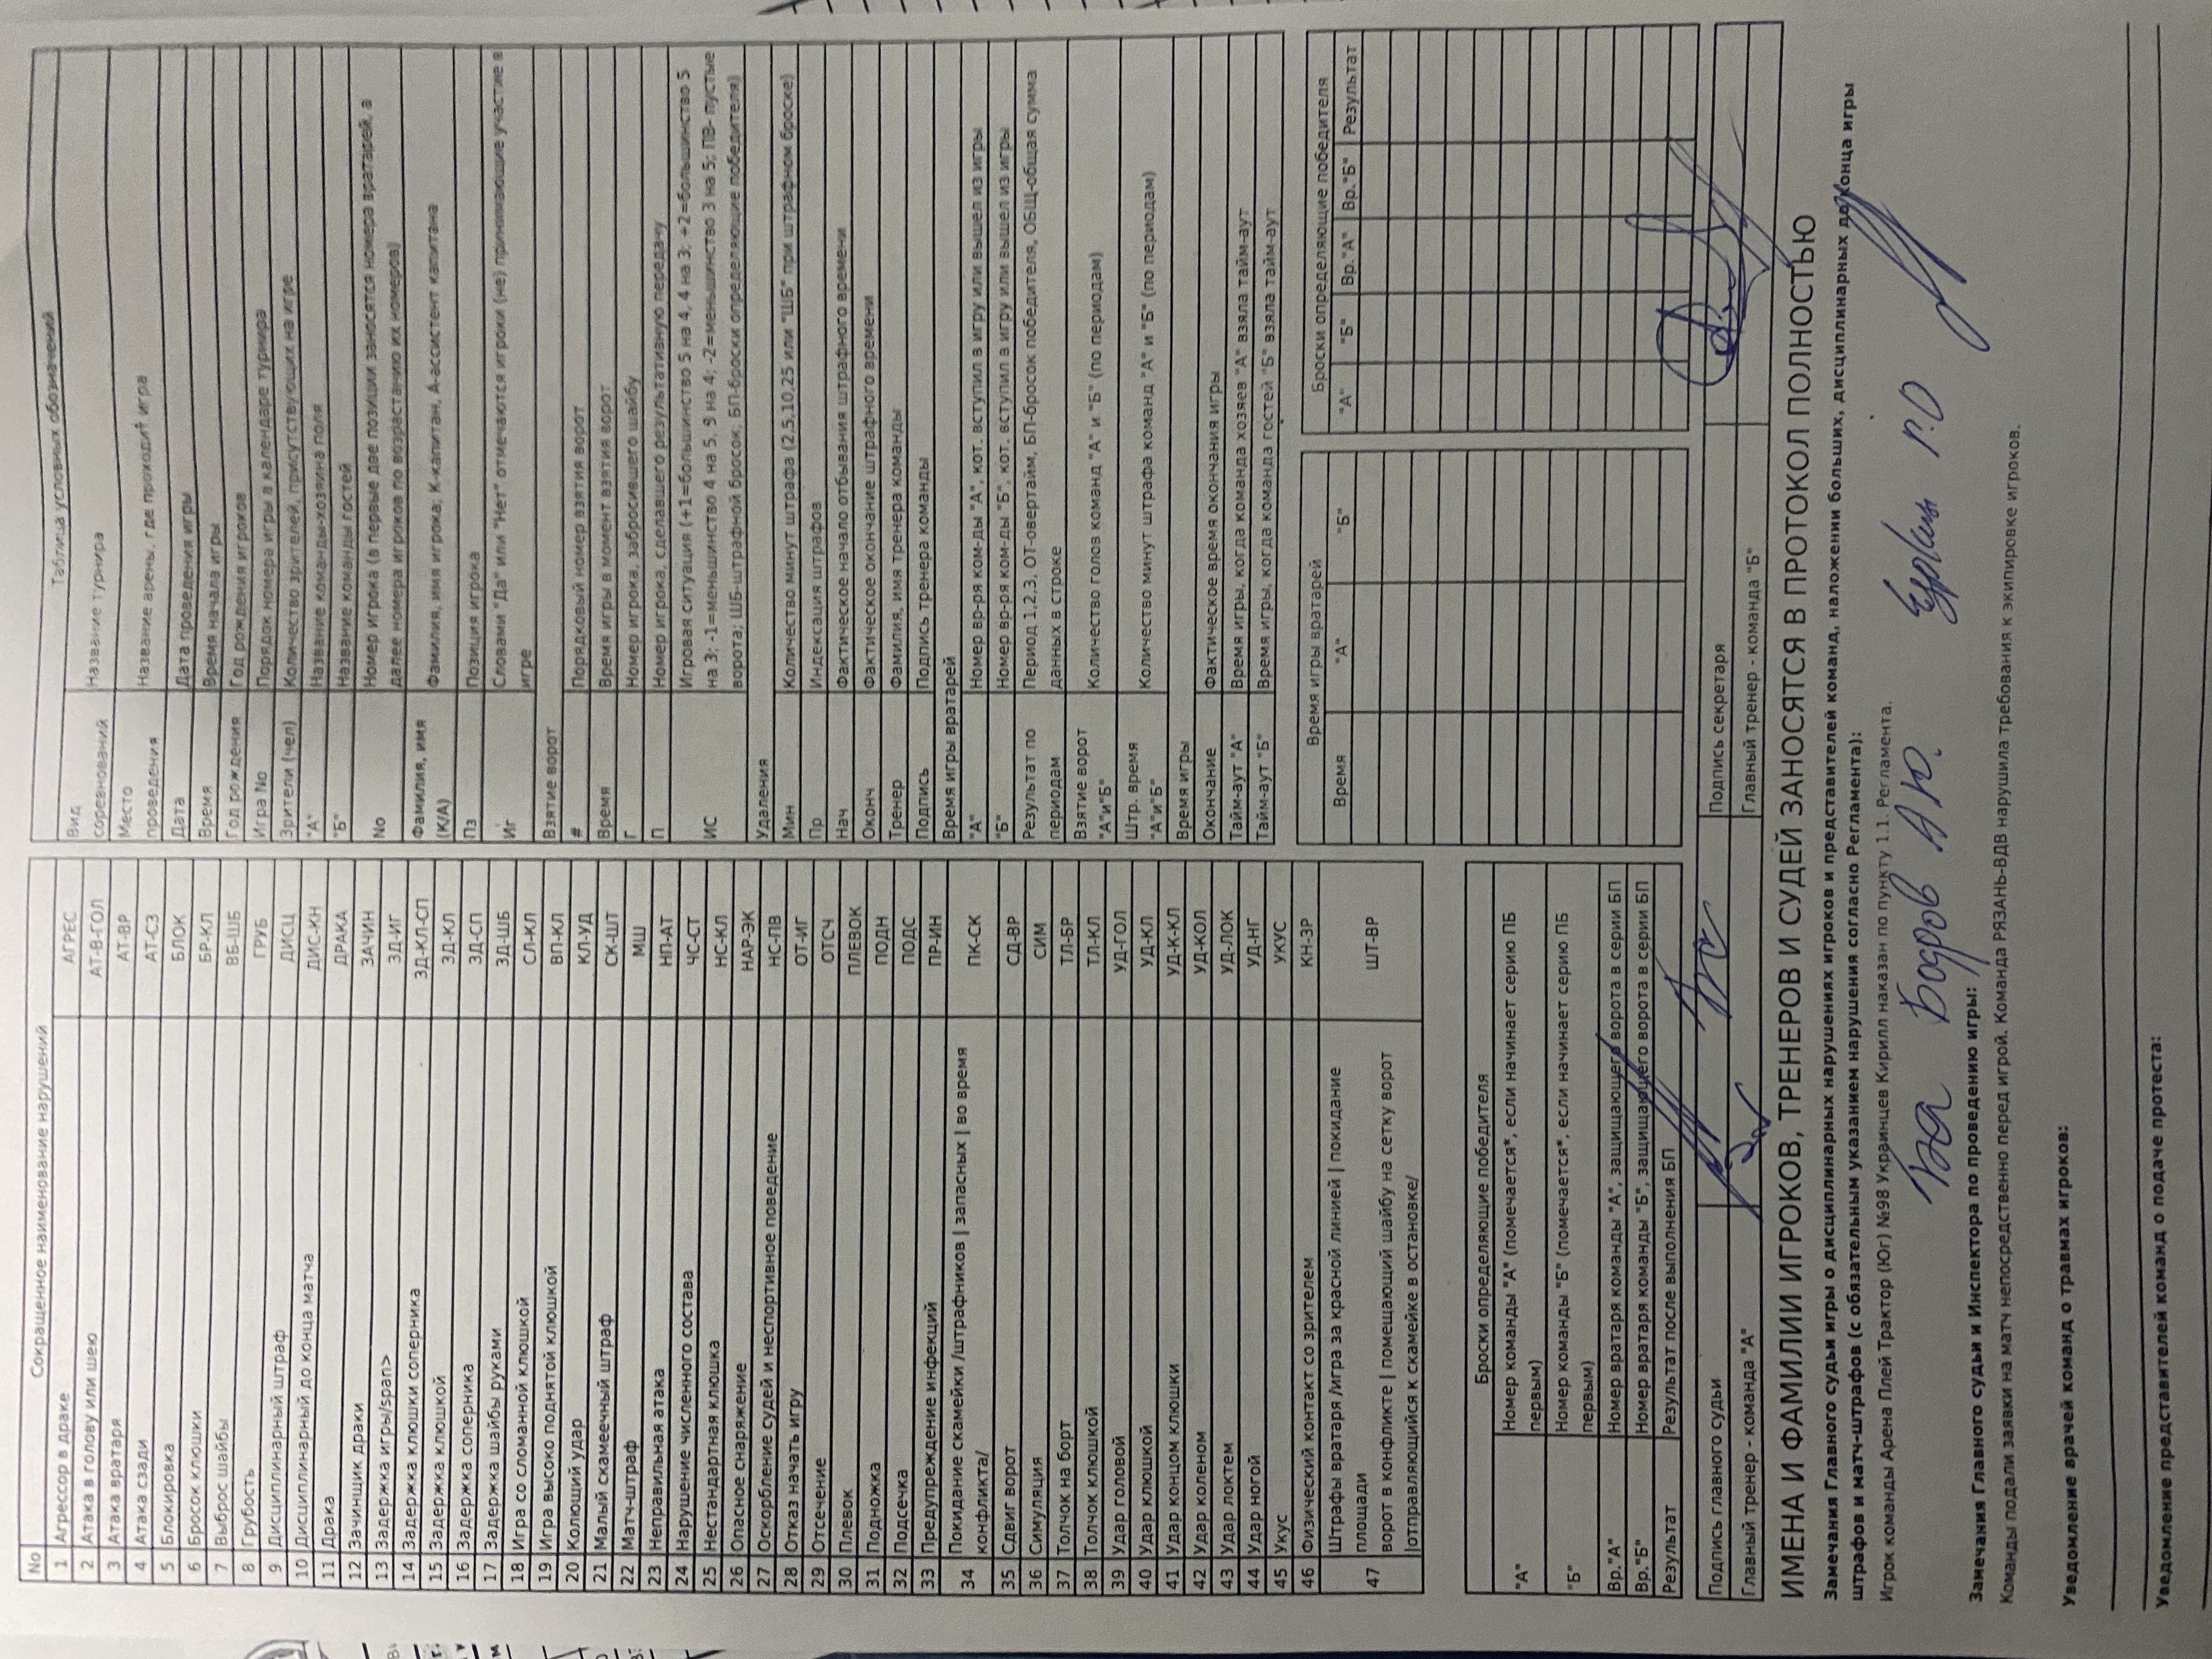 No Сокращенное наименование нарушений
1 Агрессор в драке АГРЕС
2 Атака в голову или шею АТ-В-ГОЛ
3 Атака вратаря АТ-ВР
4 Атака сзади АТ-СЗ
5 Блокировка БЛОК
6 Бросок клюшки БР-КЛ
7 Выброс шайбы ВБ-ШБ
8 Грубость ГРУБ
9 Дисциплинарный штраф ДИСЦ
10 Дисциплинарный до конца матча ДИС-КН
11 Драка ДРАКА
12 Зачинщик драки ЗАЧИН
13 Задержка игры/span> ЗД-ИГ
14 Задержка клюшки соперника ЗД-КЛ-СП
15 Задержка клюшкой ЗД-КЛ
16 Задержка соперника ЗД-СП
17 Задержка шайбы руками ЗД-ШБ
18 Игра со сломанной клюшкой СЛ-КЛ
19 Игра высоко поднятой клюшкой ВП-КЛ
20 Колющий удар КЛ-УД
21 Малый скамеечный штраф СК-ШТ
22 Матч-штраф МШ
23 Неправильная атака НП-АТ
24 Нарушение численного состава ЧС-СТ
25 Нестандартная клюшка НС-КЛ
26 Опасное снаряжение НАР-ЭК
27 Оскорбление судей и неспортивное поведение НС-ПВ
28 Отказ начать игру ОТ-ИГ
29 Отсечение ОТСЧ
30 Плевок ПЛЕВОК
31 Подножка ПОДН
32 Подсечка ПОДС
33 Предупреждение инфекций ПР-ИН
34 Покидание скамейки /штрафников | запасных | во время
конфликта/ ПК-СК
35 Сдвиг ворот СД-ВР
36 Симуляция СИМ
37 Толчок на борт ТЛ-БР
38 Толчок клюшкой ТЛ-КЛ
39 Удар головой УД-ГОЛ
40 Удар клюшкой УД-КЛ
41 Удар концом клюшки УД-К-КЛ
42 Удар коленом УД-КОЛ
43 Удар локтем УД-ЛОК
44 Удар ногой УД-НГ
45 Укус УКУС
46 Физический контакт со зрителем КН-ЗР
47 Штрафы вратаря /игра за красной линией | покидание
площади
ворот в конфликте | помещающий шайбу на сетку ворот
|отправляющийся к скамейке в остановке/ ШТ-ВР
Броски определяющие победителя
"А" Номер команды "А" (помечается*, если начинает серию ПБ
первым)
"Б" Номер команды "Б" (помечается*, если начинает серию ПБ
первым)
Вр."А" Номер вратаря команды "А", защищающего ворота в серии БП
Вр."Б" Номер вратаря команды "Б", защищающего ворота в серии БП
Результат Результат после выполнения БП
Таблица условных обозначений
Вид
соревнований Название турнира
Место
проведения Название арены, где проходит игра
Дата Дата проведения игры
Время Время начала игры
Год рождения Год рождения игроков
Игра No Порядок номера игры в календаре турнира
Зрители (чел) Количество зрителей, присутствующих на игре
"А" Название команды-хозяина поля
"Б" Название команды гостей
No Номер игрока (в первые две позиции заносятся номера вратарей, а
далее номера игроков по возрастанию их номеров)
Фамилия, имя
(К/А) Фамилия, имя игрока; К-капитан, А-ассистент капитана
Пз Позиция игрока
Иг Словами "Да" или "Нет" отмечаются игроки (не) принимающие участие в
игре
Взятие ворот
# Порядковый номер взятия ворот
Время Время игры в момент взятия ворот
Г Номер игрока, забросившего шайбу
П Номер игрока, сделавшего результативную передачу
ИС Игровая ситуация (+1=большинство 5 на 4, 4 на 3; +2=большинство 5
на 3; -1=меньшинство 4 на 5, 3 на 4; -2=меньшинство 3 на 5; ПВ- пустые
ворота; ШБ-штрафной бросок; БП-броски определяющие победителя)
Удаления
Мин Количество минут штрафа (2,5,10,25 или "ШБ" при штрафном броске)
Пр Индексация штрафов
Нач Фактическое начало отбывания штрафного времени
Оконч Фактическое окончание штрафного времени
Тренер Фамилия, имя тренера команды
Подпись Подпись тренера команды
Время игры вратарей
"А" Номер вр-ря ком-ды "А", кот. вступил в игру или вышел из игры
"Б" Номер вр-ря ком-ды "Б", кот. вступил в игру или вышел из игры
Результат по
периодам Период 1,2,3, ОТ-овертайм, БП-бросок победителя, ОБЩ-общая сумма
данных в строке
Взятие ворот
"А"и"Б" Количество голов команд "А" и "Б" (по периодам)
Штр. время
"А"и"Б" Количество минут штрафа команд "А" и "Б" (по периодам)
Время игры
Окончание Фактическое время окончания игры
Тайм-аут "А" Время игры, когда команда хозяев "А" взяла тайм-аут
Тайм-аут "Б" Время игры, когда команда гостей "Б" взяла тайм-аут
Время игры вратарей
Время "А" "Б"
Броски определяющие победителя
"А" "Б" Вр."А" Вр."Б" Результат
Подпись главного судьи Подпись секретаря
Главный тренер - команда "А" Главный тренер - команда "Б"
ИМЕНА И ФАМИЛИИ ИГРОКОВ, ТРЕНЕРОВ И СУДЕЙ ЗАНОСЯТСЯ В ПРОТОКОЛ ПОЛНОСТЬЮ
Замечания Главного судьи игры о дисциплинарных нарушениях игроков и представителей команд, наложении больших, дисциплинарных до конца игры
штрафов и матч-штрафов (с обязательным указанием нарушения согласно Регламента):
Игрок команды Арена Плей Трактор (Юг) №98 Украинцев Кирилл наказан по пункту 1.1. Регламента.
Бодров А.Ю.
Замечания Главного судьи и Инспектора по проведению игры:
Команды подали заявки на матч непосредственно перед игрой. Команда РЯЗАНЬ-ВДВ нарушила требования к экипировке игроков.
Уведомление врачей команд о травмах игроков:
Уведомление представителей команд о подаче протеста: